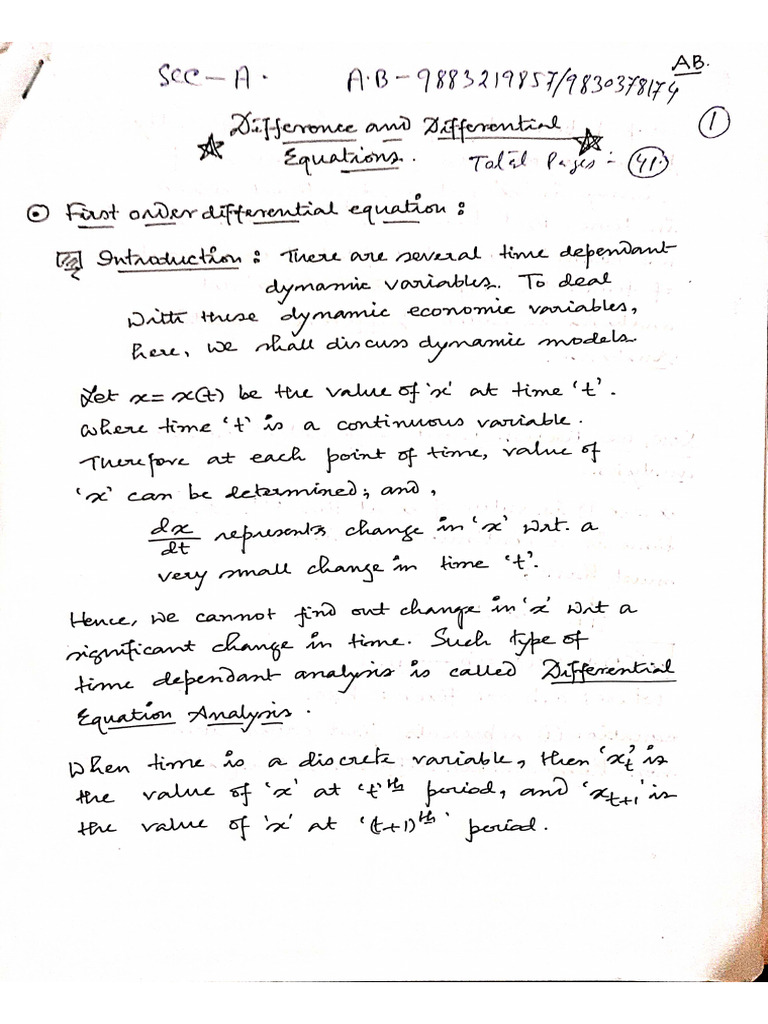 AB.
SCC - A. A.B - 9883219857/9830378174
1
Difference and Differential
Equations. Total Pages - 41.
First order differential equation:
Introduction: There are several time dependant
dynamic variables. To deal
with these dynamic economic variables,
here, we shall discuss dynamic models.
Let x = x(t) be the value of 'x' at time 't'.
where time 't' is a continuous variable.
Therefore at each point of time, value of
'x' can be determined; and,
dx/dt represents change in 'x' wrt. a
very small change in time 't'.
Hence, we cannot find out change in 'x' wrt a
significant change in time. Such type of
time dependant analysis is called Differential
Equation Analysis.
When time is a discrete variable, then 'x_t' is
the value of 'x' at 't'th period, and 'x_{t+1}' is
the value of 'x' at '(t+1)th' period.